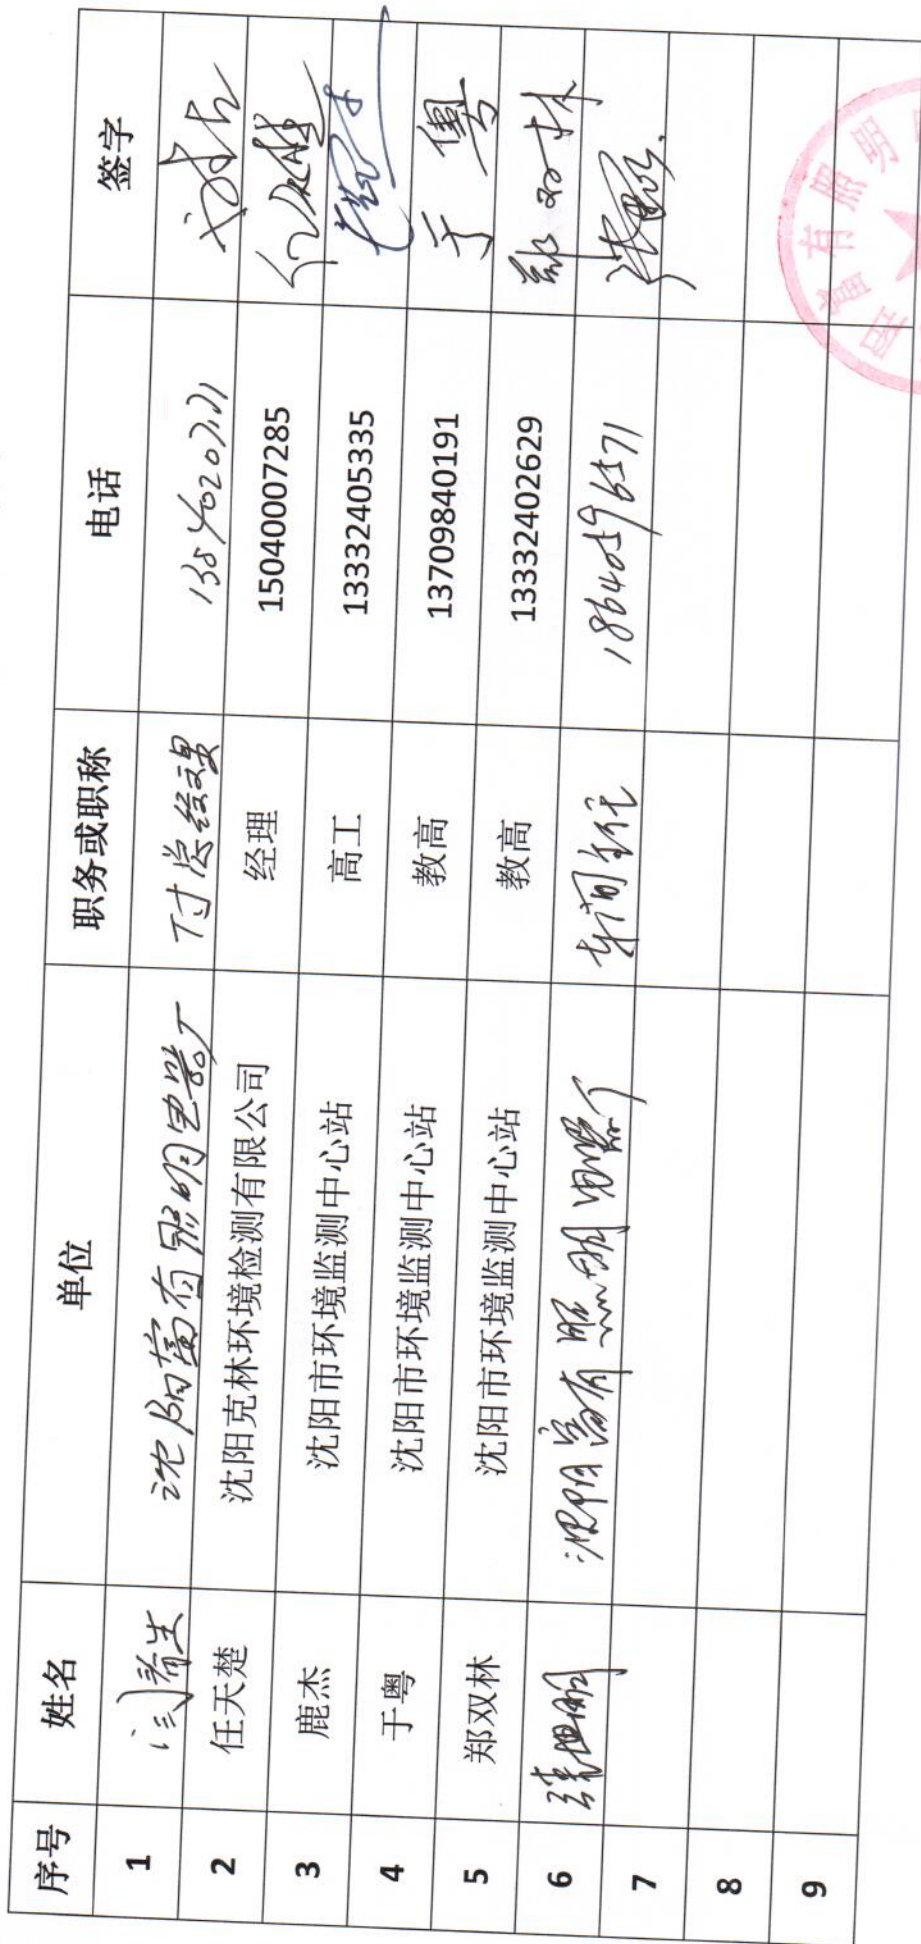 序号 姓名 单位 职务或职称 电话 签字
1 沈阳富有照明电器厂 付总经理
2 任天楚 沈阳克林环境检测有限公司 经理 15040007285
3 鹿杰 沈阳市环境监测中心站 高工 13332405335
4 于粤 沈阳市环境监测中心站 教高 13709840191 于粤
5 郑双林 沈阳市环境监测中心站 教高 13332402629 郑双林
6 沈阳富有照明电器厂 车间主任 18640596571
7
8
9
富有照明